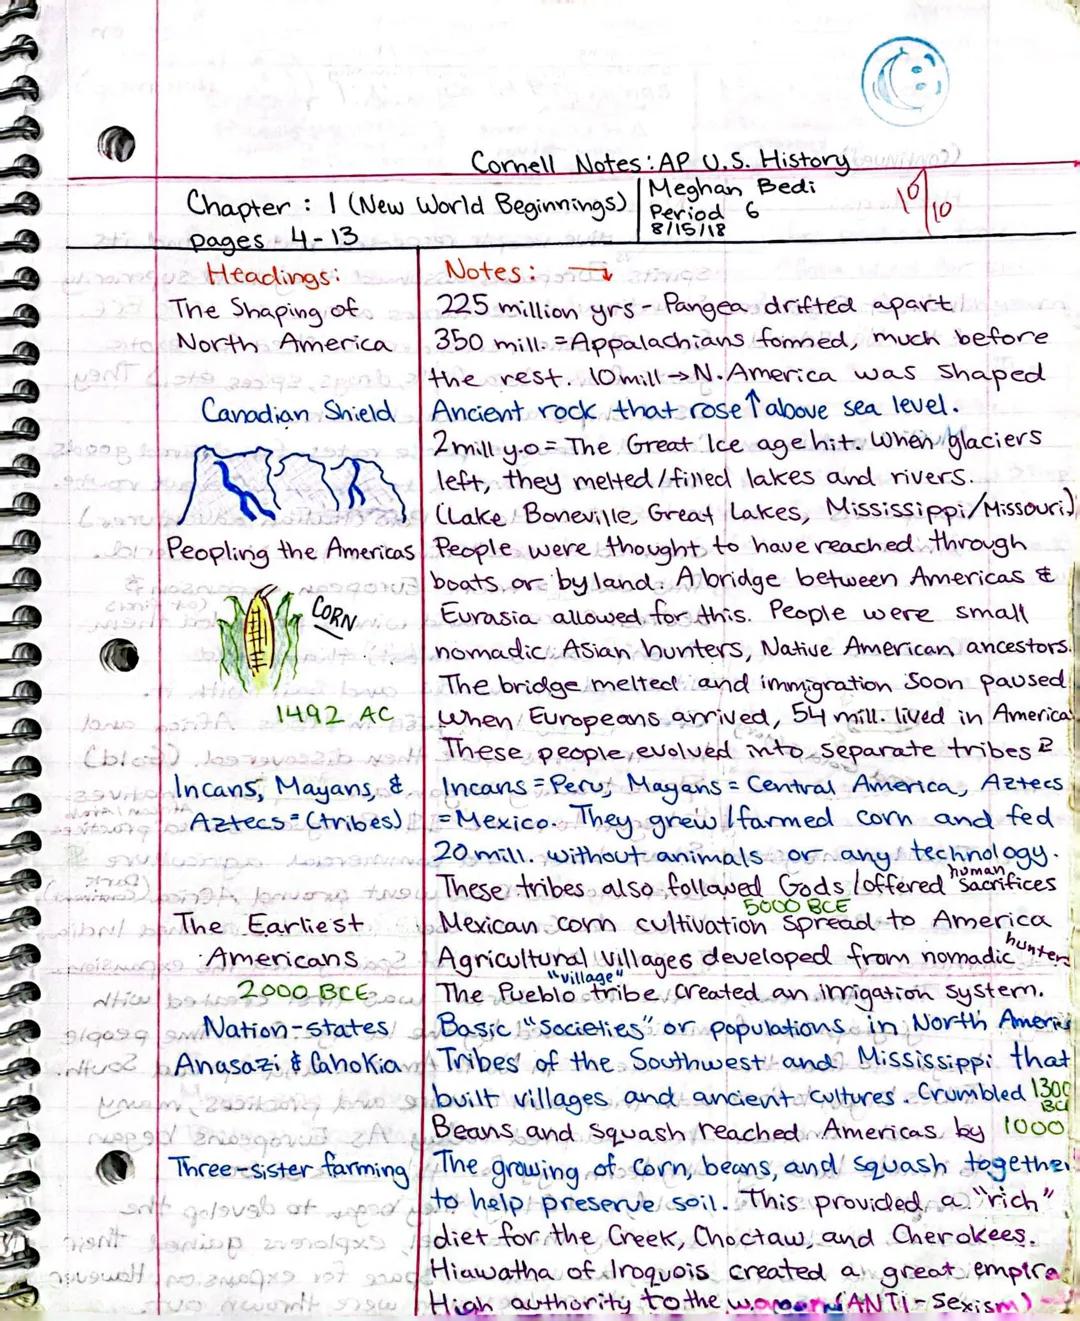 Cornell Notes: AP U.S. History
Chapter : 1 (New World Beginnings)
pages 4-13
Meghan Bedi
Period 6
8/15/18
10/10
Headings:
Notes:
The Shaping of
North America
225 million yrs - Pangea drifted apart
350 mill. = Appalachians formed, much before
the rest. 10 mill → N. America was shaped
Canadian Shield
Ancient rock that rose ↑ above sea level.
2 mill y.o = The Great Ice age hit. When glaciers
left, they melted/filled lakes and rivers.
(Lake Boneville, Great Lakes, Mississippi/Missouri)
Peopling the Americas
People were thought to have reached through
boats or by land. A bridge between Americas &
Eurasia allowed for this. People were small
nomadic Asian hunters, Native American ancestors.
CORN
1492 AC
The bridge melted and immigration soon paused
When Europeans arrived, 54 mill. lived in America
These people evolved into separate tribes
Incans, Mayans, &
Aztecs = (tribes)
Incans = Peru, Mayans = Central America, Aztecs
= Mexico. They grew/farmed corn and fed
20 mill. without animals or any technology.
These tribes also followed Gods/offered human sacrifices
5000 BCE
The Earliest
Americans
2000 BCE
Mexican corn cultivation spread to America
Agricultural villages developed from nomadic hunters
"village"
The Pueblo tribe created an irrigation system.
Nation-states
Basic "societies" or populations in North Ameri
Anasazi & Cahokia
Tribes of the Southwest and Mississippi that
built villages and ancient cultures. Crumbled 1300
BCE
Beans and squash reached Americas by 1000
Three-sister farming
The growing of corn, beans, and squash together
to help preserve soil. This provided a "rich"
diet for the Creek, Choctaw, and Cherokees.
Hiawatha of Iroquois created a great empire
High authority to the women (ANTI-Sexism)